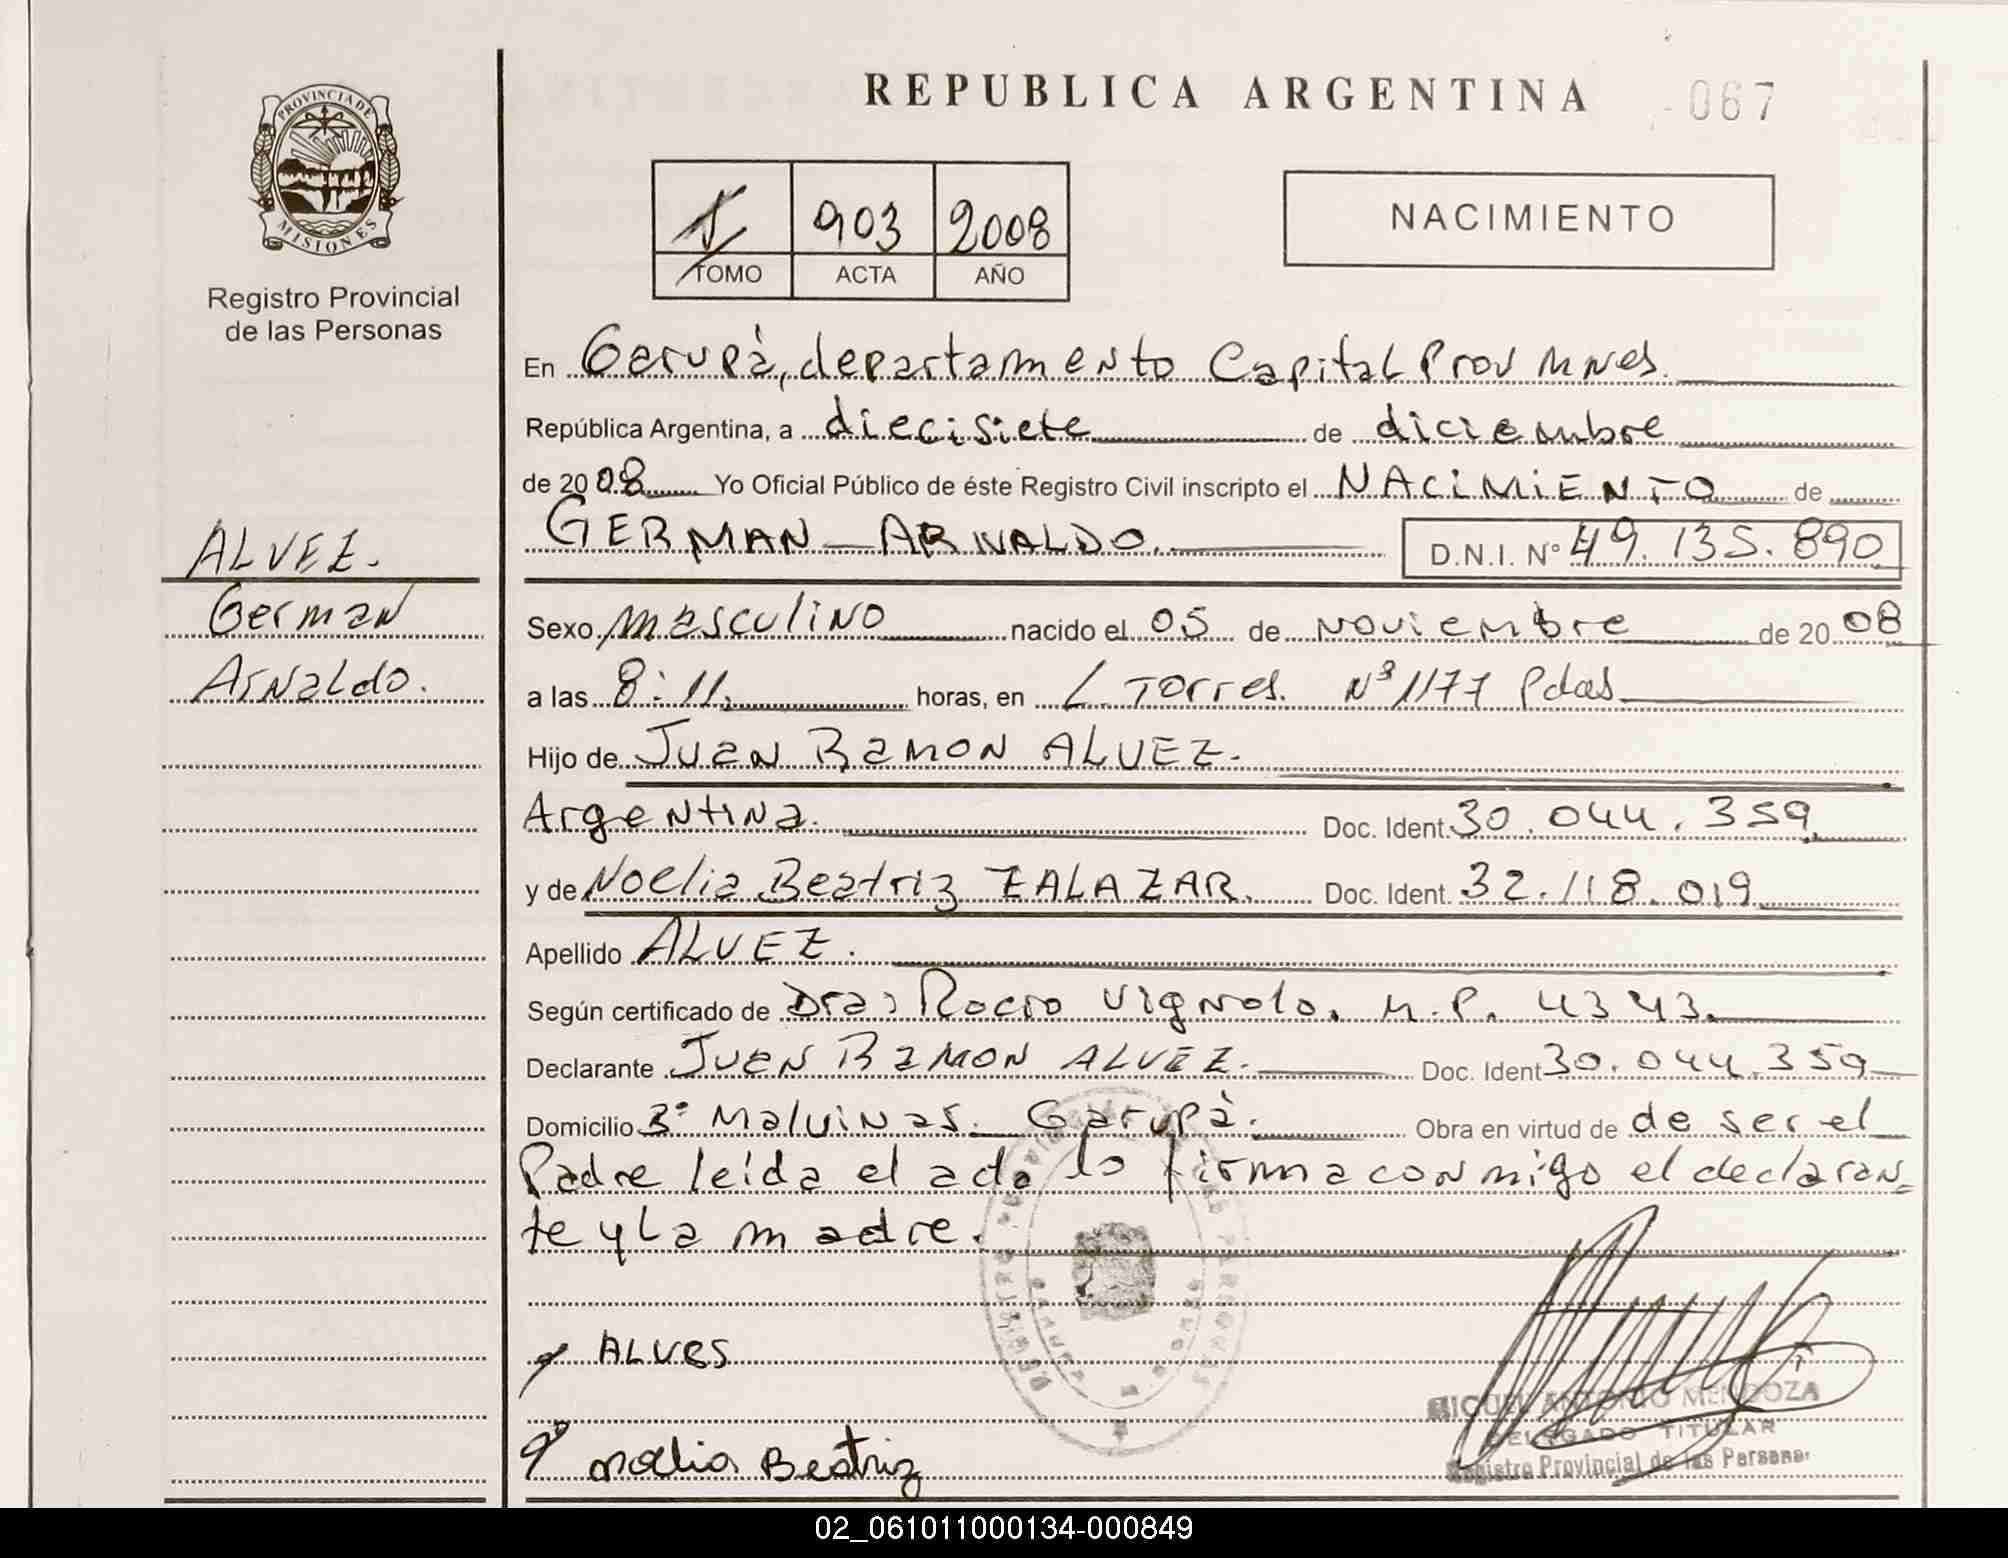 REPUBLICA ARGENTINA
067
PROVINCIA DE
MISIONES
Registro Provincial
de las Personas
903 2008
TOMO ACTA AÑO
NACIMIENTO
En Garupà, departamento Capital Prov Mnes.
República Argentina, a diecisiete de diciembre
de 2008 Yo Oficial Público de éste Registro Civil inscripto el NACIMIENTO de
GERMAN ARNALDO. D.N.I. Nº 49.135.890
ALVEZ.
German
Arnaldo.
Sexo masculino nacido el 05 de noviembre de 2008
a las 8:11. horas, en L. Torres. Nº 1177 Pdas
Hijo de Juan Ramon ALVEZ.
Argentina. Doc. Ident. 30.044.359
y de Noelia Beatriz ZALAZAR. Doc. Ident. 32.118.019
Apellido ALVEZ.
Según certificado de Dra; Rocio Vignolo. M.P. 4343.
Declarante Juan Ramon ALVEZ. Doc. Ident 30.044.359
Domicilio Bº Malvinas. Garupà. Obra en virtud de de ser el
Padre leida el acta la firma conmigo el declaran=
te y la madre.
ALVES
noelia Beatriz
MIGUEL ANTONIO MENDOZA
DELEGADO TITULAR
Registro Provincial de las Personas
02_061011000134-000849